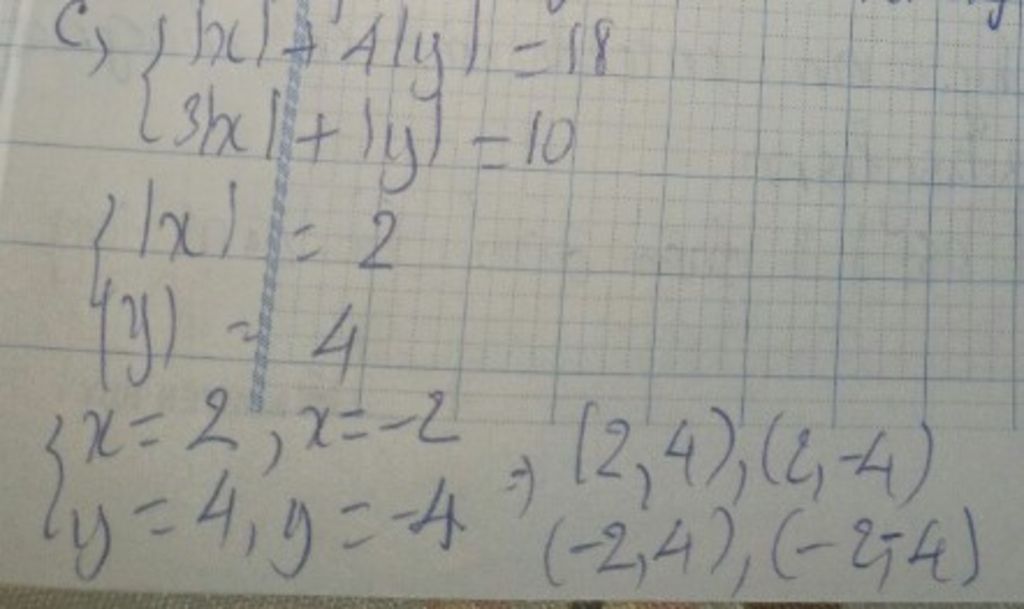 c, { |x| + 4|y| = 18
{ 3|x| + |y| = 10
{ |x| = 2
|y| = 4
{ x = 2, x = -2
y = 4, y = -4 => (2, 4), (2, -4)
(-2, 4), (-2, -4)